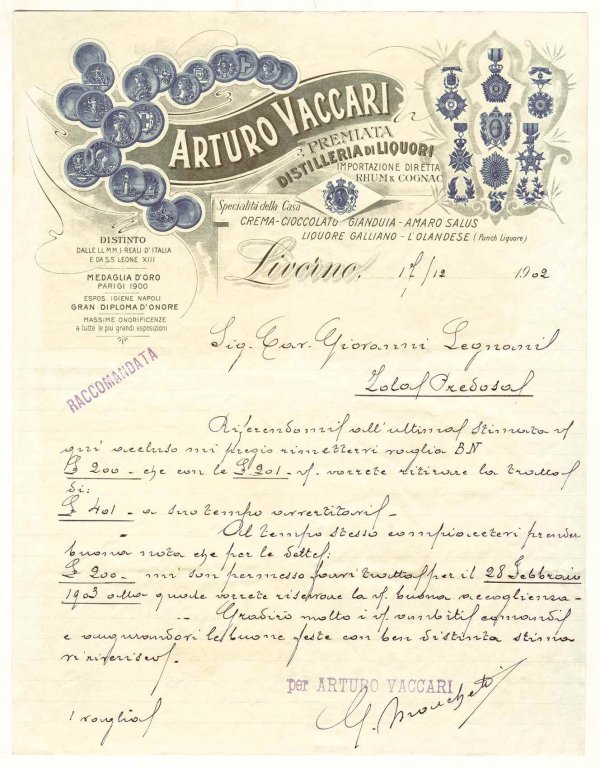 ARTURO VACCARI
PREMIATA
DISTILLERIA DI LIQUORI
IMPORTAZIONE DIRETTA
RHUM & COGNAC
Specialità della Casa
CREMA-CIOCCOLATO GIANDUIA-AMARO SALUS
LIQUORE GALLIANO - L'OLANDESE (Punch Liquore)
DISTINTO
DALLE LL.MM. I REALI D'ITALIA
E DA S.S. LEONE XIII
MEDAGLIA D'ORO
PARIGI 1900
ESPOS. IGIENE NAPOLI
GRAN DIPLOMA D'ONORE
MASSIME ONORIFICENZE
a tutte le più grandi esposizioni
Livorno, 17/12 1902
Sig. Cav. Giovanni Legnani
Zola Predosa
RACCOMANDATA
Riferendomi all'ultima stimata v/
qui accluso mi pregio rimettervi vaglia BN
£ 200 - che con le £ 201 - v/. vorrete ritirare la tratta
di:
£ 401 - a suo tempo avvertitavi -
Al tempo stesso compiacetevi prender
buona nota che per le dette:
£ 200 - mi son permesso farvi tratta per il 28 Febbraio
1903 alla quale vorrete riservare la v/. buona accoglienza -
Gradirò molto i v/. ambiti comandi
e augurandovi le buone feste con ben distinta stima
vi riverisco.
per ARTURO VACCARI
1 vaglia